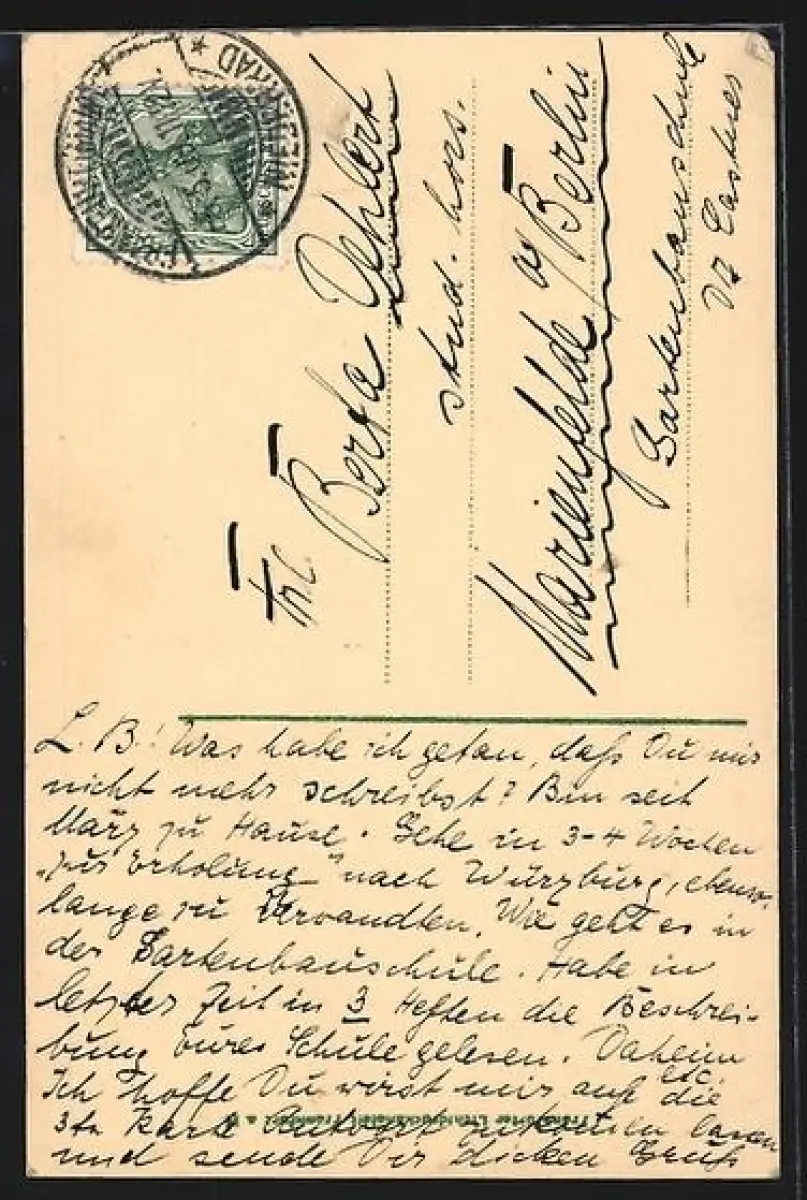 Frl.
Berta Oehlert
stud. hors.
Marienfelde b/Berlin
Gartenbauschule
Dr Castner
L. B! Was habe ich getan, daß Du mir
nicht mehr schreibst? Bin seit
März zu Hause. Gehe in 3-4 Wochen
"zur Erholung" nach Würzburg, ebenso
lange zu Verwandten. Wie geht es in
der Gartenbauschule. Habe in
letzter Zeit in 3 Heften die Beschrei-
bung Eurer Schule gelesen. Daheim etc.
Ich hoffe Du wirst mir auf die
3te Karte Antwort zukommen lassen
und sende Dir dicken Gruß